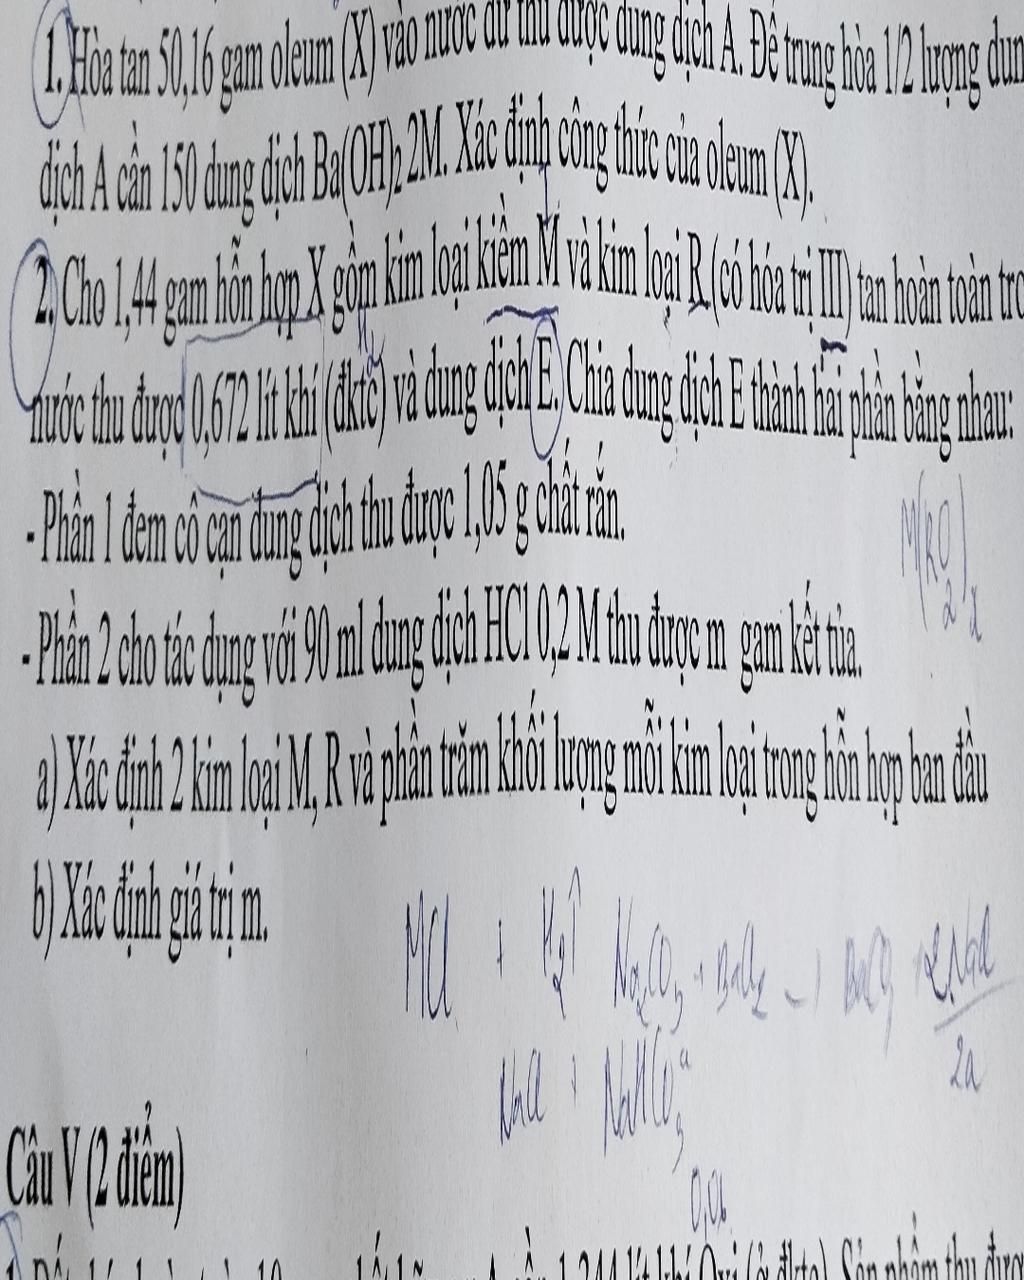 1. Hòa tan 50,16 gam oleum (X) vào nước dư thu được dung dịch A. Để trung hòa 1/2 lượng dun
dịch A cần 150 dung dịch Ba(OH)₂ 2M. Xác định công thức của oleum (X).
2. Cho 1,44 gam hỗn hợp X gồm kim loại kiềm M và kim loại R (có hóa trị III) tan hoàn toàn tro
H₂
nước thu được 0,672 lít khí (đktc) và dung dịch E. Chia dung dịch E thành hai phần bằng nhau:
- Phần 1 đem cô cạn dung dịch thu được 1,05 g chất rắn.
M(RO₂)ₓ
- Phần 2 cho tác dụng với 90 ml dung dịch HCl 0,2 M thu được m gam kết tủa.
a) Xác định 2 kim loại M, R và phần trăm khối lượng mỗi kim loại trong hỗn hợp ban đầu
b) Xác định giá trị m.
MCl + H₂↑ Na₂CO₃ + BaCl₂ → BaCO₃ + 2NaCl
2a
NaCl + NaHCO₃
0,06
Câu V (2 điểm)